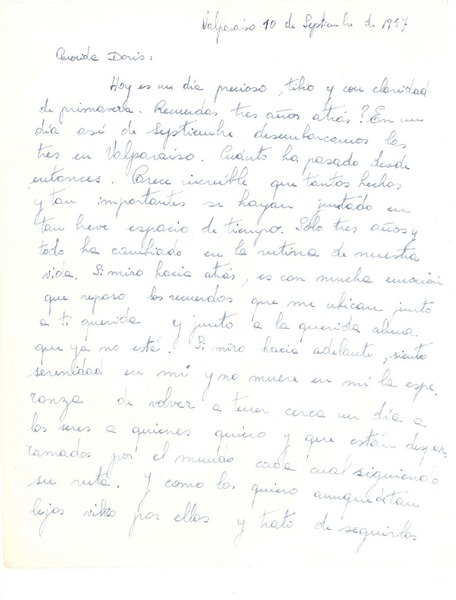 Valparaíso 10 de Septiembre de 1957
Querida Doris:
Hoy es un día precioso, tibio y con claridad
de primavera. Recuerdas, tres años atrás? En un
día así de septiembre desembarcamos las
tres en Valparaíso. Cuánto ha pasado desde
entonces. Parece increíble que tantos hechos
y tan importantes se hayan juntado en
tan breve espacio de tiempo. Sólo tres años y
todo ha cambiado en la rutina de nuestra
vida. Si miro hacia atrás, es con mucha emoción
que repaso los recuerdos que me ubican junto
a ti querida y junto a la querida alma
que ya no está. Si miro hacia adelante, siento
serenidad en mí y no muere en mí la espe
ranza de volver a tener cerca un día a
los seres a quienes quiero y que están despa
rramados por el mundo cada cual siguiendo
su ruta. Y como los quiero aunque estan
lejos vibro por ellos y trato de seguirlos